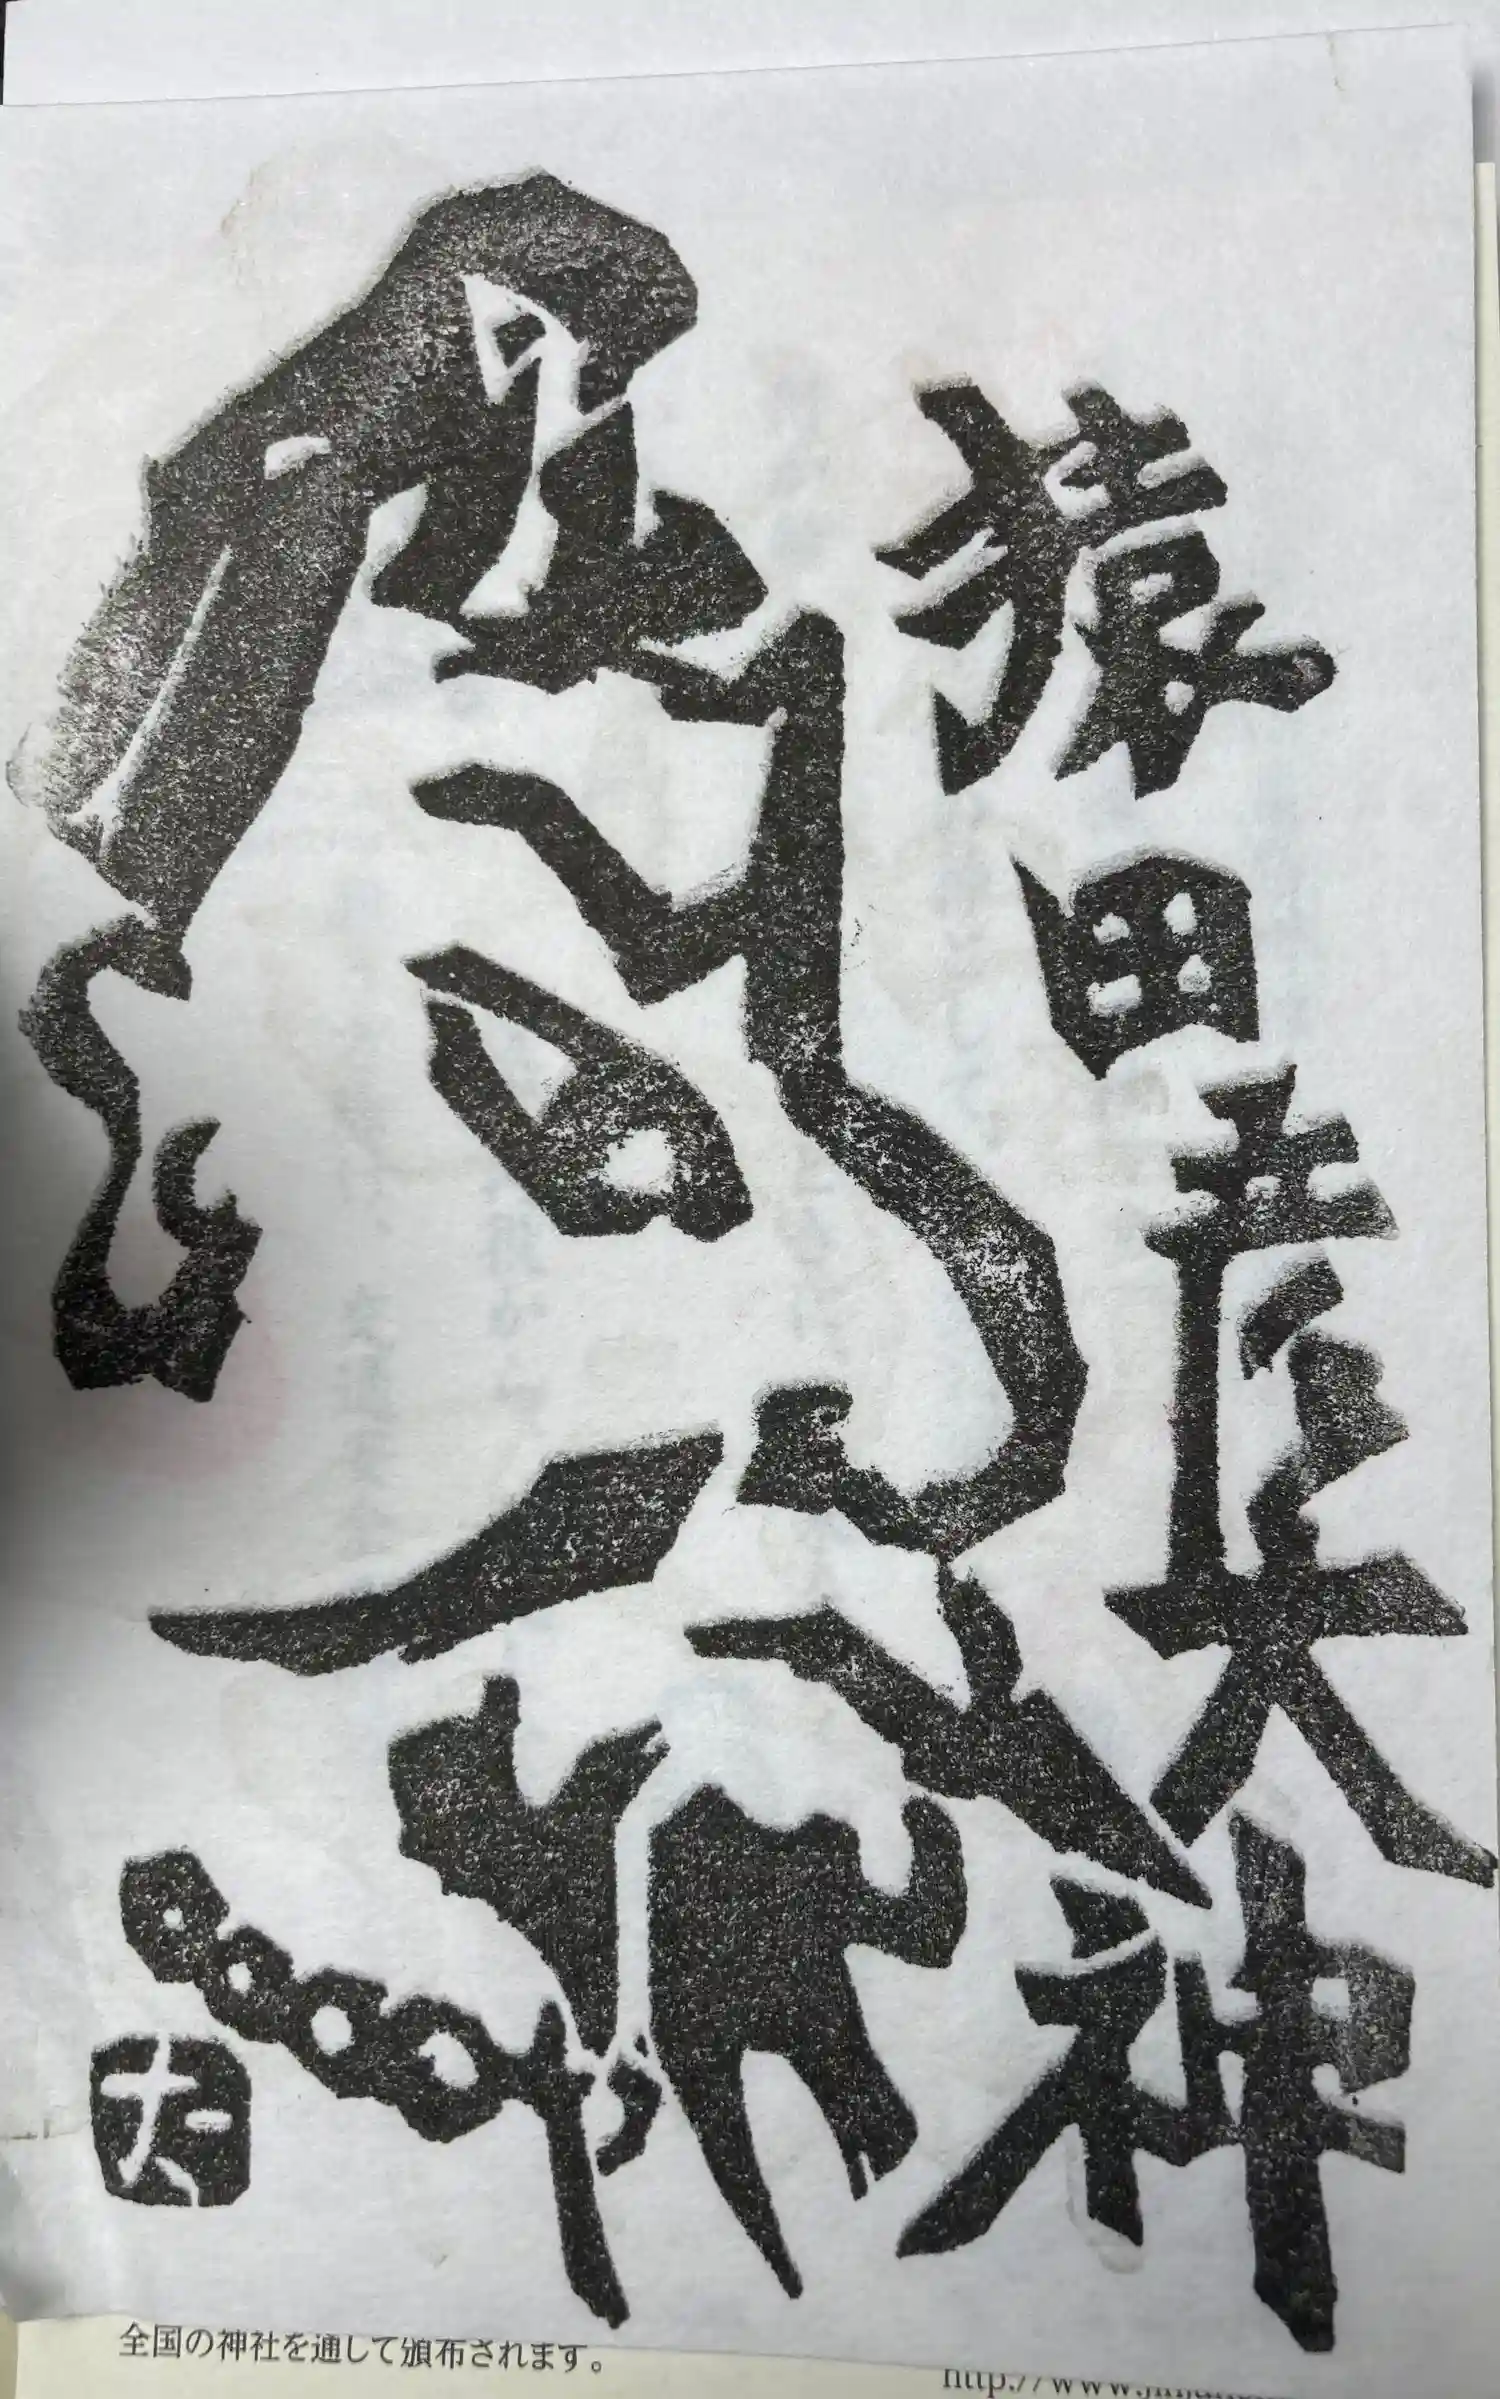 猿田彦大神
全国の神社を通して頒布されます。
http://www.